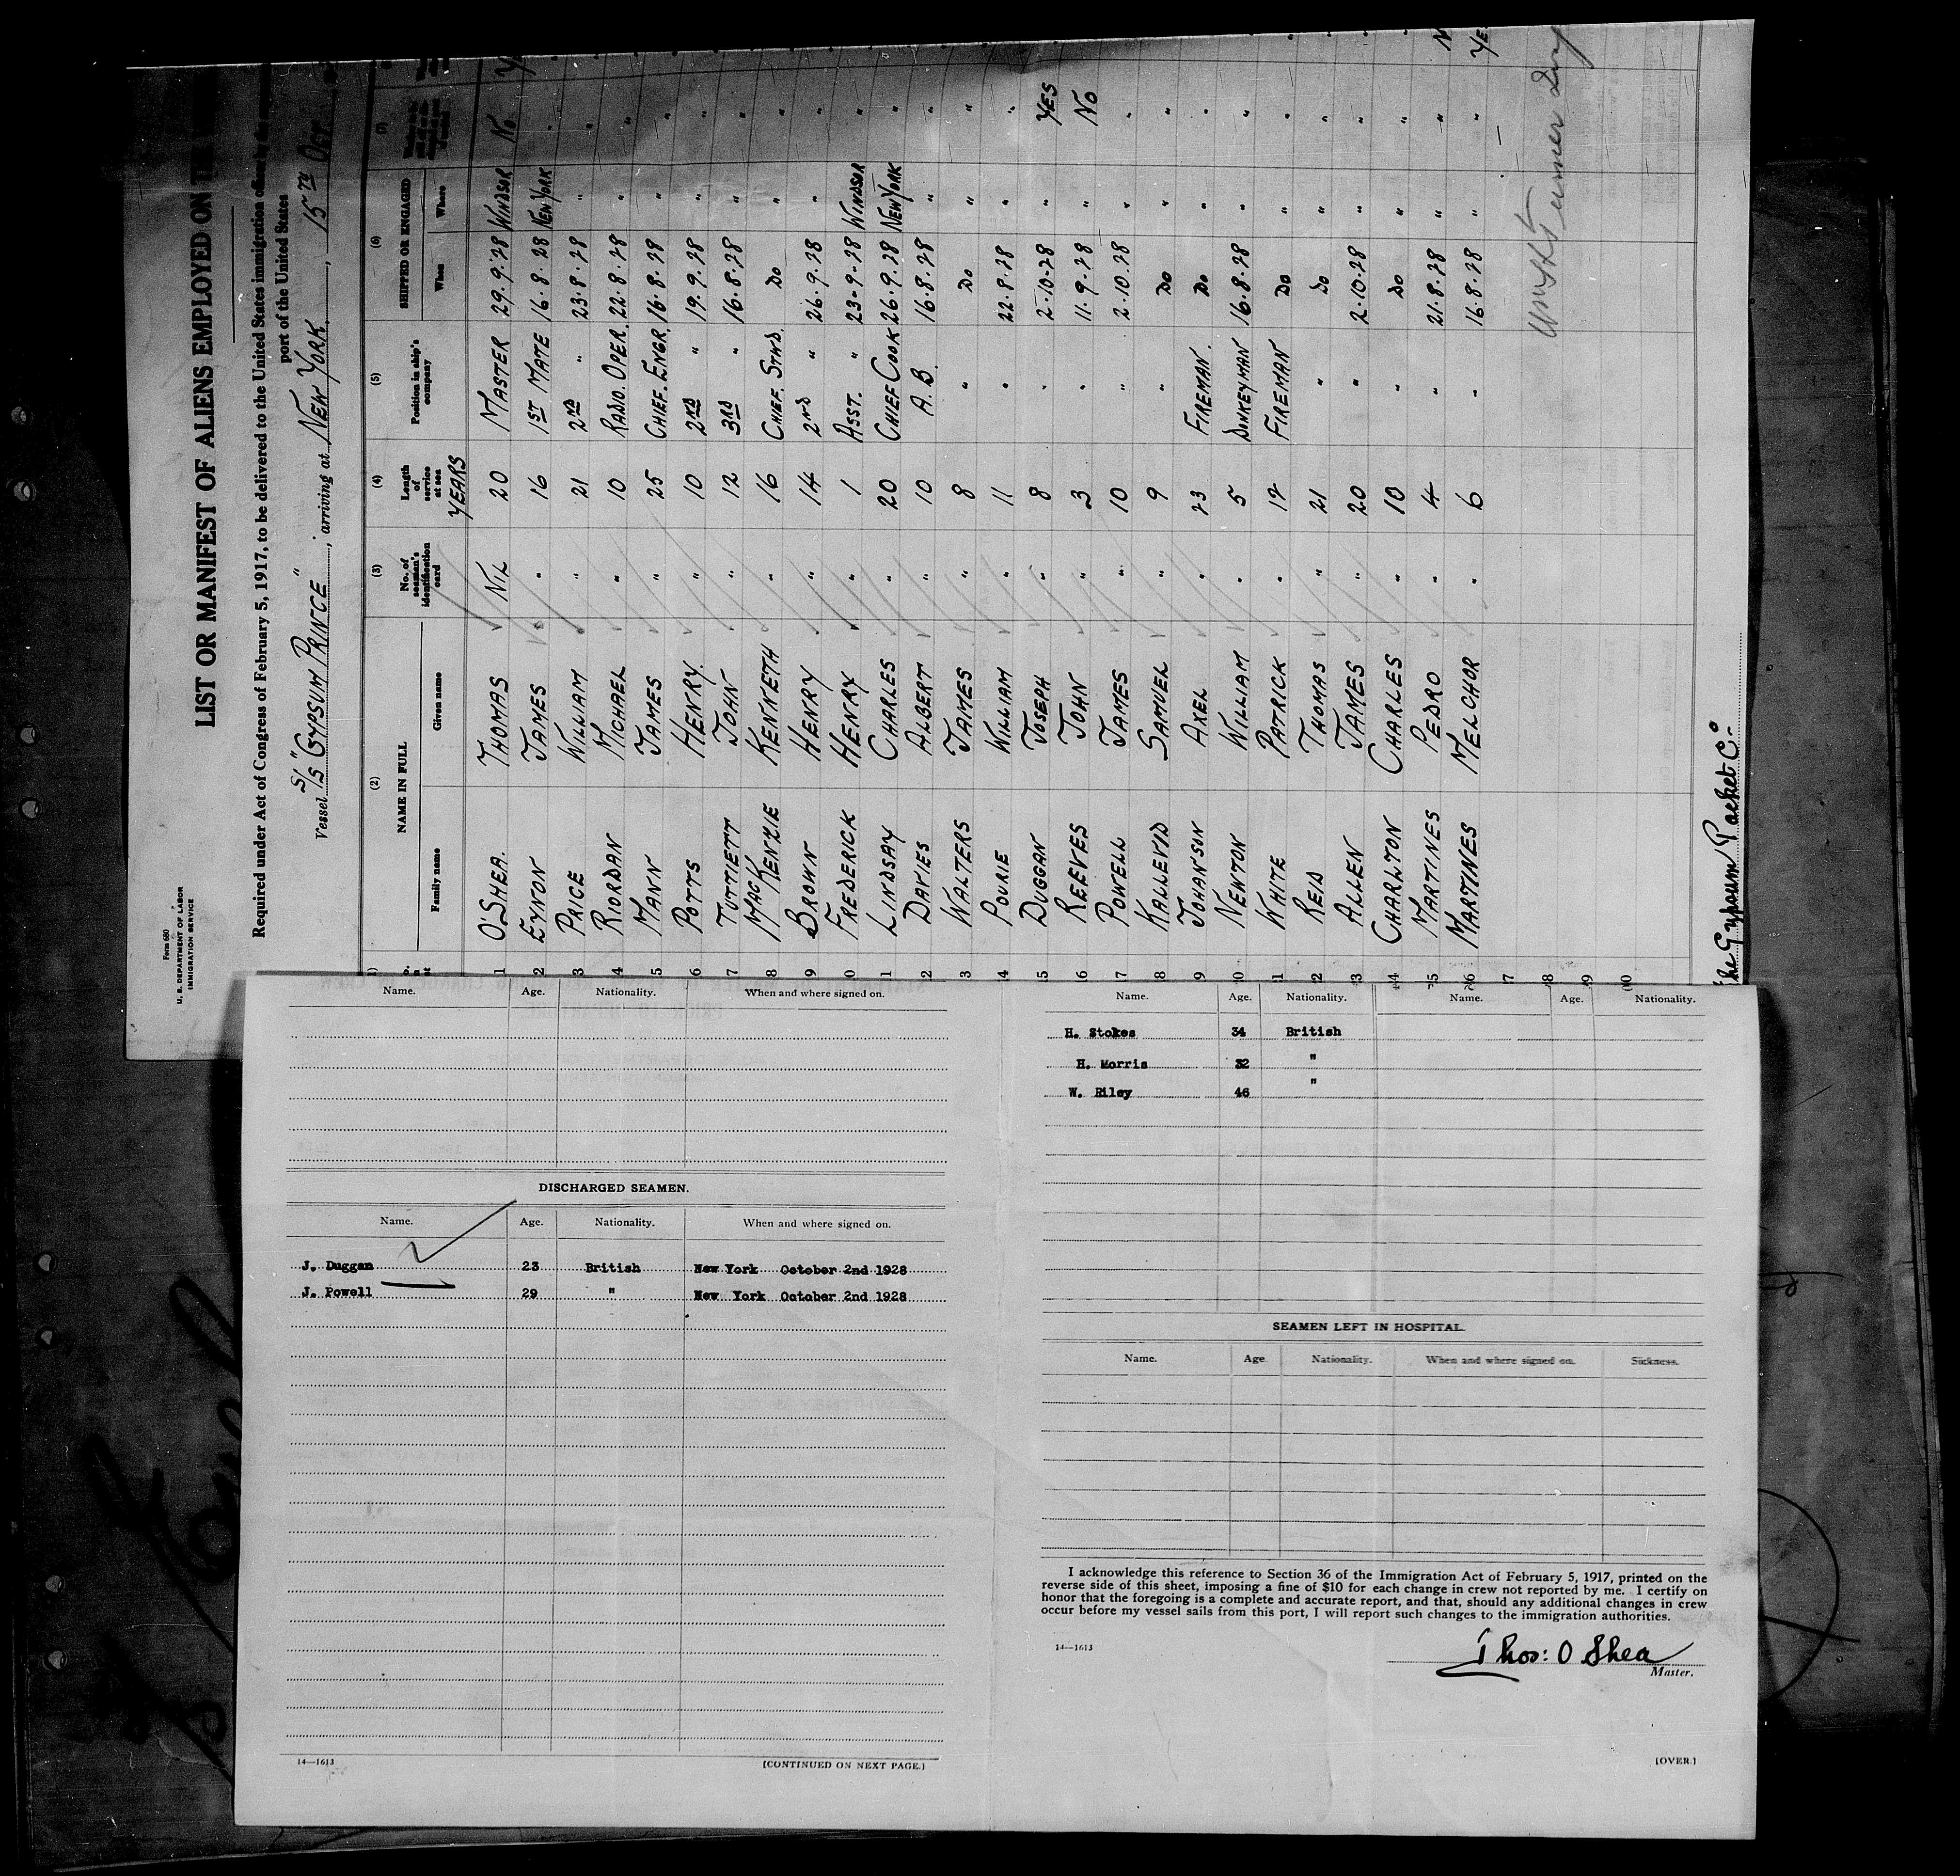 Form 680
U. S. DEPARTMENT OF LABOR
IMMIGRATION SERVICE
LIST OR MANIFEST OF ALIENS EMPLOYED ON THE
Required under Act of Congress of February 5, 1917, to be delivered to the United States immigration officer by the
port of the United States
Vessel S/S "GYPSUM PRINCE", arriving at NEW YORK, 15TH OCT.
(2) (3) (4) (5) (6) (7)
NAME IN FULL No. of seaman's identification card Length of service at sea Position in ship's company SHIPPED OR ENGAGED
Family name Given name YEARS When Where
1 O'SHEA. THOMAS NIL 20 MASTER 29.9.28 WINDSOR NO
2 EYNON JAMES " 16 1ST MATE 16.8.28 NEW YORK "
3 PRICE WILLIAM " 21 2ND " 23.8.28 " "
4 RIORDAN MICHAEL " 10 RADIO. OPER. 22.8.28 " "
5 MANN JAMES " 25 CHIEF. ENGR. 16.8.28 " "
6 POTTS HENRY. " 10 2ND " 19.9.28 " "
7 TUTTIETT JOHN " 12 3RD " 16.8.28 " "
8 MACKENZIE KENNETH " 16 CHIEF. STWD. DO " "
9 BROWN HENRY " 14 2ND " 26.9.28 " "
0 FREDERICK HENRY " 1 ASST. " 23-9-28 WINDSOR "
11 LINDSAY CHARLES " 20 CHIEF COOK 26.9.28 NEW YORK "
12 DAVIES ALBERT " 10 A.B. 16.8.28 " "
3 WALTERS JAMES " 8 " DO " "
4 POURIE WILLIAM " 11 " 22.8.28 " "
5 DUGGAN JOSEPH " 8 " 2-10-28 " YES
6 REEVES JOHN " 3 " 11.9.28 " NO
7 POWELL JAMES " 10 " 2.10.28 " "
8 KALLEVID SAMUEL " 9 " DO " "
9 JOHANSON AXEL " 23 FIREMAN. DO " "
0 NEWTON WILLIAM " 5 DONKEYMAN 16.8.28 " "
1 WHITE PATRICK " 12 FIREMAN DO " "
2 REID THOMAS " 21 " DO " "
3 ALLEN JAMES " 20 " 2.10.28 " "
4 CHARLTON CHARLES " 10 " DO " "
5 MARTINES PEDRO " 4 " 21.8.28 " "
6 MARTINES MELCHOR " 6 " 16.8.28 " "
7
8
9
Gypsum Packet Co.
Name. Age. Nationality. When and where signed on.
DISCHARGED SEAMEN.
Name. Age. Nationality. When and where signed on.
J. Duggan 23 British New York October 2nd 1928
J. Powell 29 " New York October 2nd 1928
14—1613 [CONTINUED ON NEXT PAGE.]
Name. Age. Nationality. Name. Age. Nationality.
H. Stokes 34 British
H. Morris 32 "
W. Riley 46 "
SEAMEN LEFT IN HOSPITAL.
Name. Age. Nationality. When and where signed on. Sickness.
I acknowledge this reference to Section 36 of the Immigration Act of February 5, 1917, printed on the
reverse side of this sheet, imposing a fine of $10 for each change in crew not reported by me. I certify on
honor that the foregoing is a complete and accurate report, and that, should any additional changes in crew
occur before my vessel sails from this port, I will report such changes to the immigration authorities.
14—1613
Thos: O Shea
Master.
[OVER.]